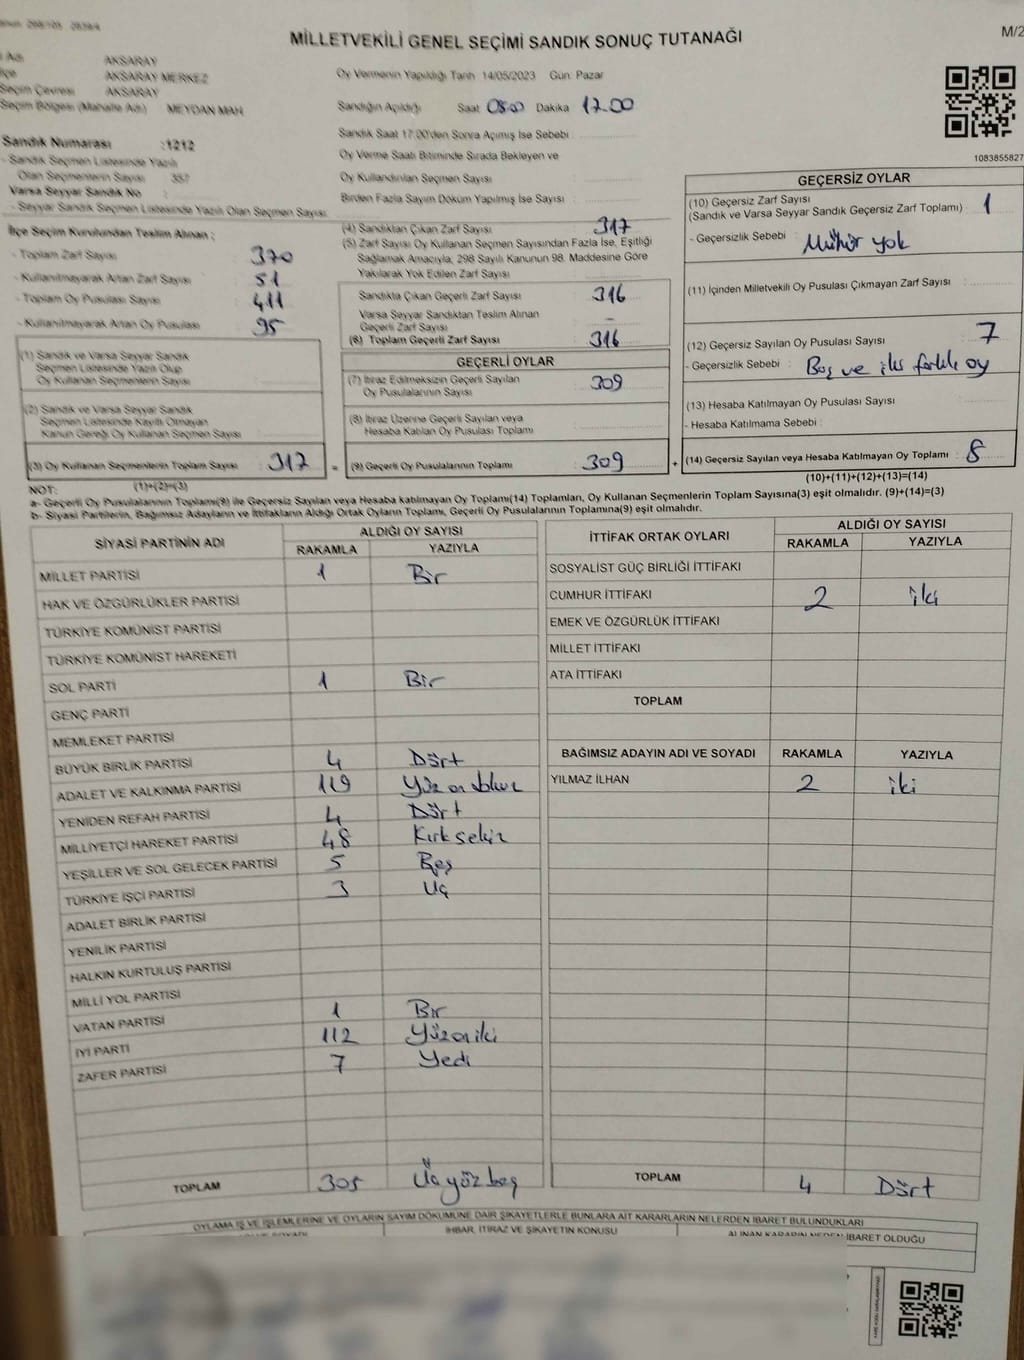 MİLLETVEKİLİ GENEL SEÇİMİ SANDIK SONUÇ TUTANAĞI
M/2
AKSARAY
AKSARAY MERKEZ
Seçim Çevresi AKSARAY
Seçim Bölgesi (Mahalle Adı) MEYDAN MAH.
Sandık Numarası :1212
- Sandık Seçmen Listesinde Yazılı
Olan Seçmenlerin Sayısı 357
Varsa Seyyar Sandık No :
- Seyyar Sandık Seçmen Listesinde Yazılı Olan Seçmen Sayısı:
İlçe Seçim Kurulundan Teslim Alınan :
- Toplam Zarf Sayısı 370
- Kullanılmayarak Artan Zarf Sayısı 51
- Toplam Oy Pusulası Sayısı 411
- Kullanılmayarak Artan Oy Pusulası 95
(1) Sandık ve Varsa Seyyar Sandık
Seçmen Listesinde Yazılı Olup
Oy Kullanan Seçmenlerin Sayısı
(2) Sandık ve Varsa Seyyar Sandık
Seçmen Listesinde Kayıtlı Olmayan
Kanun Gereği Oy Kullanan Seçmen Sayısı:
(3) Oy Kullanan Seçmenlerin Toplam Sayısı : 317 =
(1)+(2)=(3)
Oy Vermenin Yapıldığı Tarih 14/05/2023 Gün: Pazar
Sandığın Açıldığı Saat 08:00 Dakika 17.00
Sandık Saat 17:00'den Sonra Açılmış İse Sebebi :
Oy Verme Saati Bitiminde Sırada Bekleyen ve
Oy Kullandırılan Seçmen Sayısı :
Birden Fazla Sayım Döküm Yapılmış İse Sayısı :
(4) Sandıktan Çıkan Zarf Sayısı : 317
(5) Zarf Sayısı Oy Kullanan Seçmen Sayısından Fazla İse, Eşitliği
Sağlamak Amacıyla, 298 Sayılı Kanunun 98. Maddesine Göre
Yakılarak Yok Edilen Zarf Sayısı :
Sandıkta Çıkan Geçerli Zarf Sayısı : 316
Varsa Seyyar Sandıktan Teslim Alınan
Geçerli Zarf Sayısı : -
(6) Toplam Geçerli Zarf Sayısı : 316
GEÇERLİ OYLAR
(7) İtiraz Edilmeksizin Geçerli Sayılan
Oy Pusulalarının Sayısı : 309
(8) İtiraz Üzerine Geçerli Sayılan veya
Hesaba Katılan Oy Pusulası Toplamı :
(9) Geçerli Oy Pusulalarının Toplamı : 309 +
1083855827
GEÇERSİZ OYLAR
(10) Geçersiz Zarf Sayısı
(Sandık ve Varsa Seyyar Sandık Geçersiz Zarf Toplamı) : 1
- Geçersizlik Sebebi : Mühür yok
(11) İçinden Milletvekili Oy Pusulası Çıkmayan Zarf Sayısı :
(12) Geçersiz Sayılan Oy Pusulası Sayısı : 7
- Geçersizlik Sebebi : Boş ve iki farklı oy
(13) Hesaba Katılmayan Oy Pusulası Sayısı :
- Hesaba Katılmama Sebebi :
(14) Geçersiz Sayılan veya Hesaba Katılmayan Oy Toplamı : 8
(10)+(11)+(12)+(13)=(14)
NOT:
a- Geçerli Oy Pusulalarının Toplamı(9) ile Geçersiz Sayılan veya Hesaba Katılmayan Oy Toplamı(14) Toplamları, Oy Kullanan Seçmenlerin Toplam Sayısına(3) eşit olmalıdır. (9)+(14)=(3)
b- Siyasi Partilerin, Bağımsız Adayların ve İttifakların Aldığı Ortak Oyların Toplamı, Geçerli Oy Pusulalarının Toplamına(9) eşit olmalıdır.
SİYASİ PARTİNİN ADI ALDIĞI OY SAYISI
RAKAMLA YAZIYLA
MİLLET PARTİSİ 1 Bir
HAK VE ÖZGÜRLÜKLER PARTİSİ
TÜRKİYE KOMÜNİST PARTİSİ
TÜRKİYE KOMÜNİST HAREKETİ
SOL PARTİ 1 Bir
GENÇ PARTİ
MEMLEKET PARTİSİ
BÜYÜK BİRLİK PARTİSİ 4 Dört
ADALET VE KALKINMA PARTİSİ 119 Yüz on dokuz
YENİDEN REFAH PARTİSİ 4 Dört
MİLLİYETÇİ HAREKET PARTİSİ 48 Kırk sekiz
YEŞİLLER VE SOL GELECEK PARTİSİ 5 Beş
TÜRKİYE İŞÇİ PARTİSİ 3 Üç
ADALET BİRLİK PARTİSİ
YENİLİK PARTİSİ
HALKIN KURTULUŞ PARTİSİ
MİLLİ YOL PARTİSİ
VATAN PARTİSİ 1 Bir
İYİ PARTİ 112 Yüzoniki
ZAFER PARTİSİ 7 Yedi
TOPLAM 305 Üçyüzbeş
İTTİFAK ORTAK OYLARI ALDIĞI OY SAYISI
RAKAMLA YAZIYLA
SOSYALİST GÜÇ BİRLİĞİ İTTİFAKI
CUMHUR İTTİFAKI 2 iki
EMEK VE ÖZGÜRLÜK İTTİFAKI
MİLLET İTTİFAKI
ATA İTTİFAKI
TOPLAM
BAĞIMSIZ ADAYIN ADI VE SOYADI RAKAMLA YAZIYLA
YILMAZ İLHAN 2 iki
TOPLAM 4 Dört
OYLAMA İŞ VE İŞLEMLERİNE VE OYLARIN SAYIM DÖKÜMÜNE DAİR ŞİKAYETLERLE BUNLARA AİT KARARLARIN NELERDEN İBARET BULUNDUKLARI
İHBAR, İTİRAZ VE ŞİKAYETİN KONUSU
ALINAN KARARIN NEDEN İBARET OLDUĞU